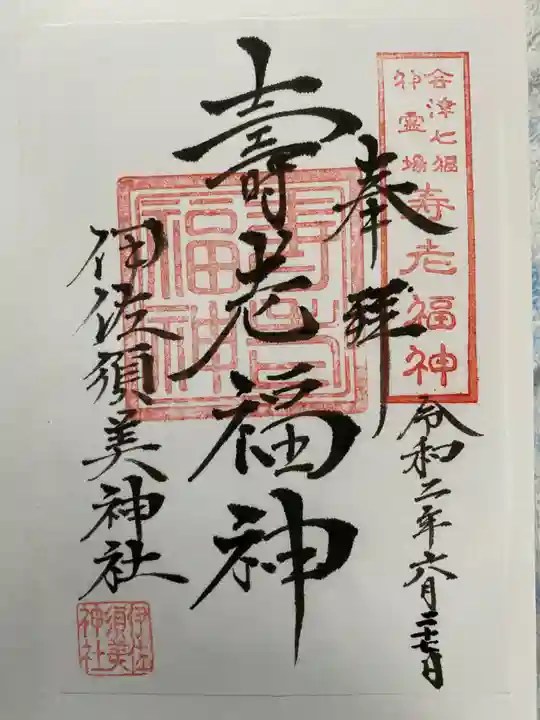 会津七福
神霊場
寿老福神
奉拝
令和二年六月二十七日
壽老福神
寿老
福神
伊佐須美神社
伊佐
須美
神社